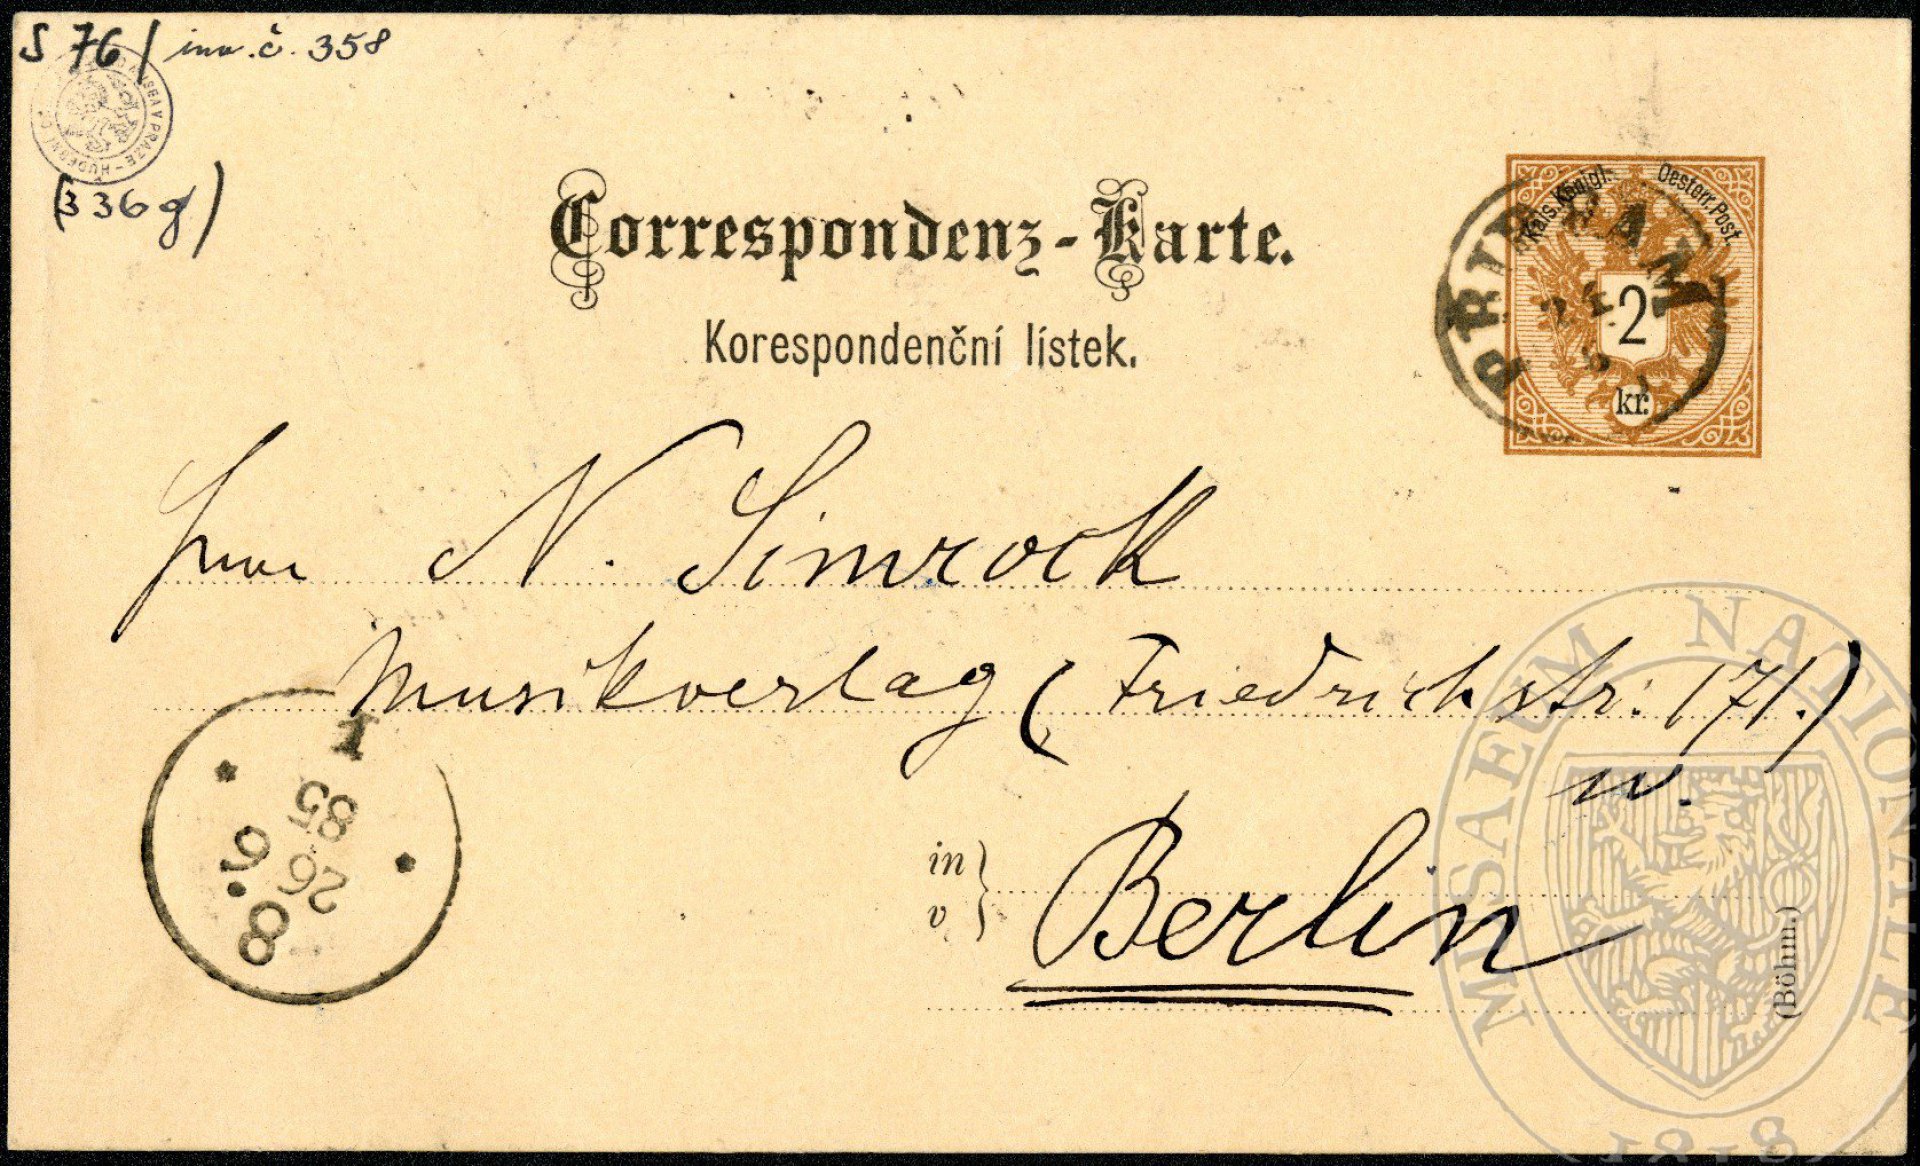 S 76 / inv. č. 358
(336 g)
Correspondenz-Karte.
Korespondenční lístek.
Kais. Königl. Oesterr. Post.
2
kr.
PRIBRAM
Herrn N. Simrock
Musikverlag (Friedrichstr: 171.)
W.
in
v
Berlin
(Böhm.)
I
85
26
8.6
MUSAEUM NATIONALE
1818